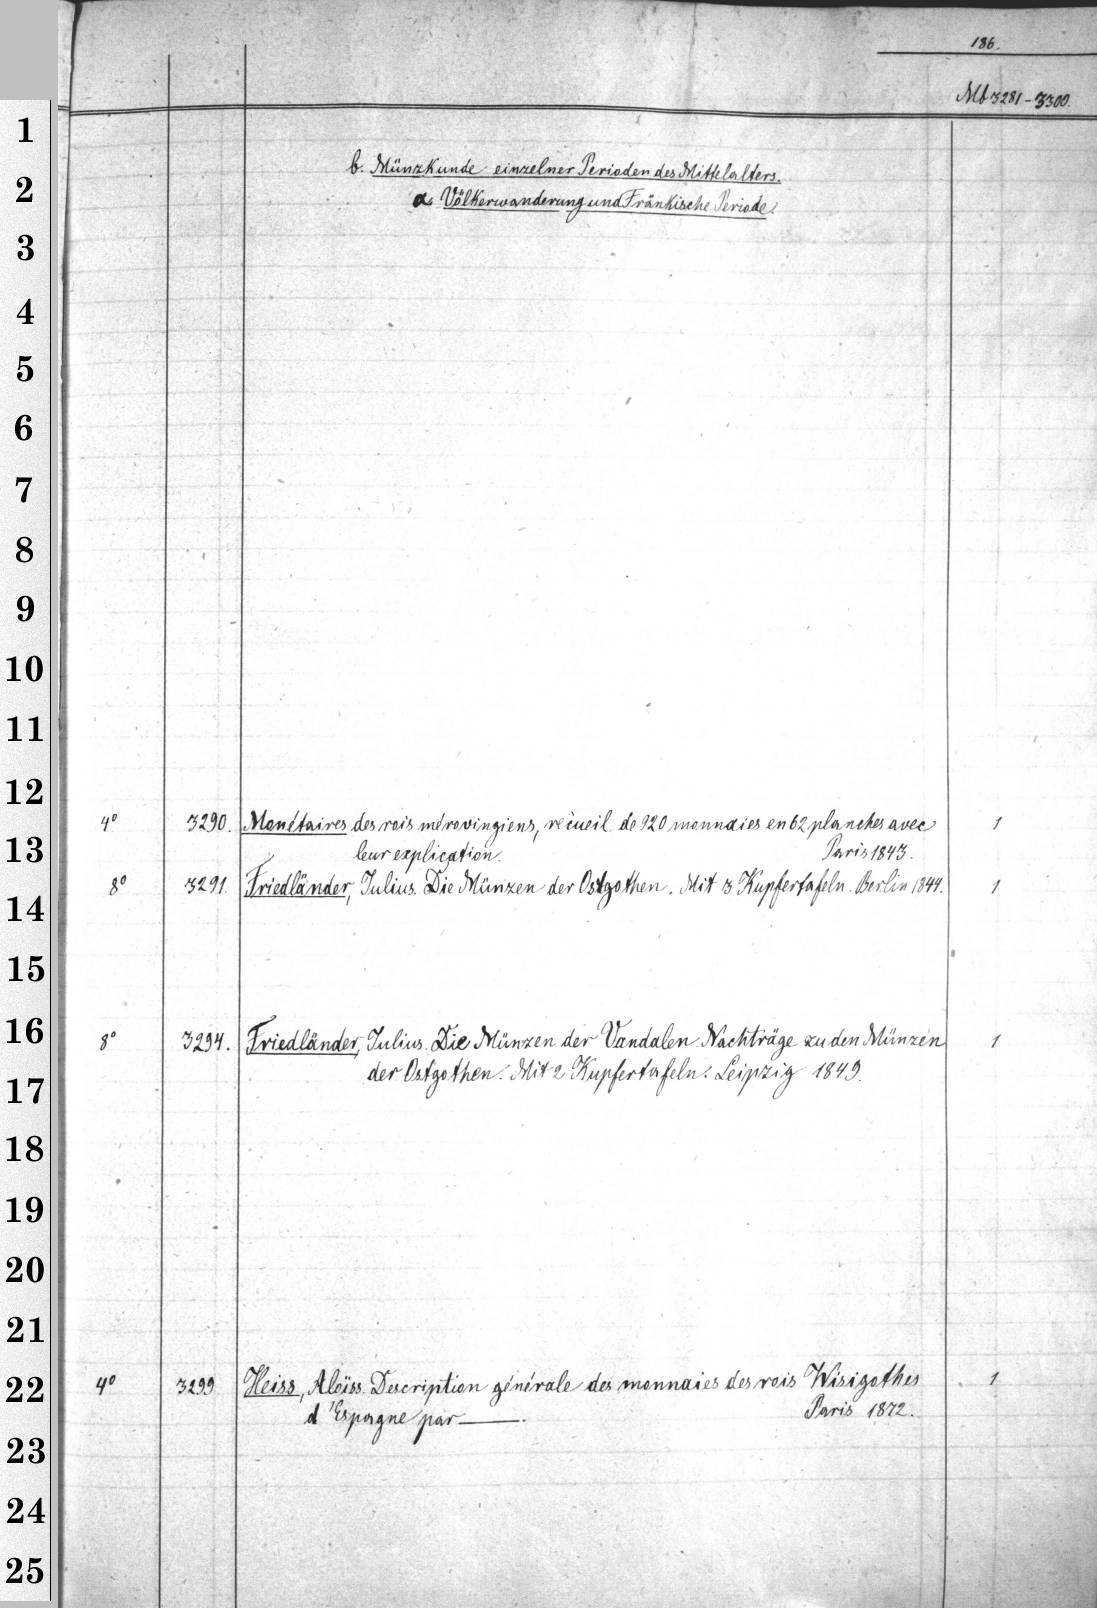 186.
Mb 3281-3300.
1
b. Münzkunde einzelner Perioden des Mittelalters.
2
α. Völkerwanderung und Fränkische Periode.
3
4
5
6
7
8
9
10
11
12
4° 3290. Monétaires des rois mérovingiens, recueil de 920 monnaies en 62 planches avec 1
13
leur explication. Paris 1843.
8° 3291. Friedländer, Julius. Die Münzen der Ostgothen. Mit 3 Kupfertafeln. Berlin 1844. 1
14
15
16
8° 3294. Friedländer, Julius. Die Münzen der Vandalen. Nachträge zu den Münzen 1
der Ostgothen. Mit 2 Kupfertafeln. Leipzig 1849.
17
18
19
20
21
22
4° 3299 Heiss, Aloïss. Description générale des monnaies des rois Wisigothes 1
d'Espagne par ——. Paris 1872.
23
24
25